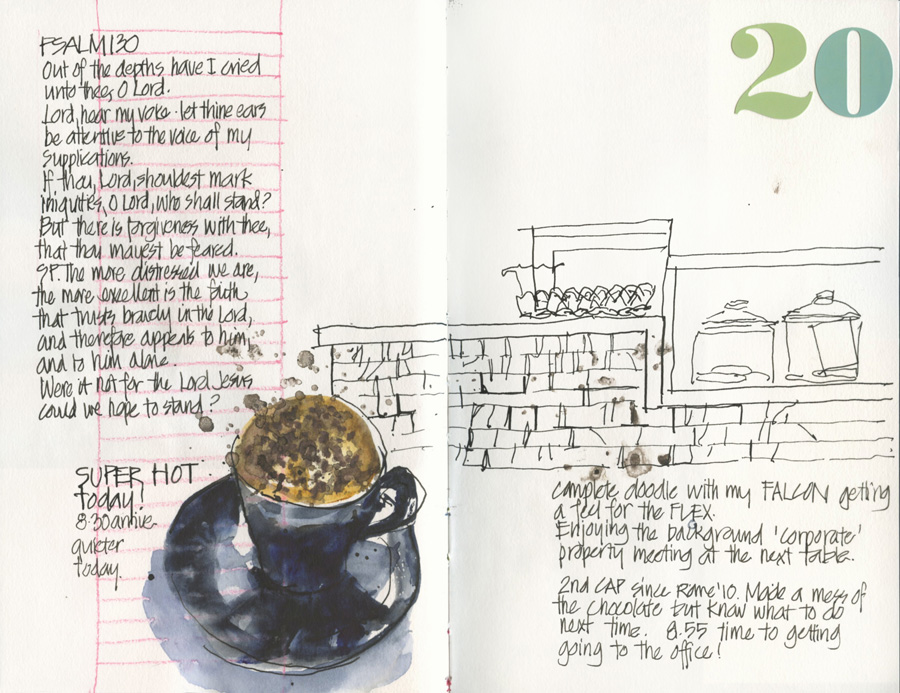 PSALM 130
Out of the depths have I cried
unto thee, O Lord.
Lord, hear my voice · let thine ears
be attentive to the voice of my
supplications.
If thou, Lord, shouldest mark
iniquities, O Lord, who shall stand?
But there is forgiveness with thee,
that thou mayest be feared.
SP. The more distressed we are,
the more excellent is the faith
that trusts bravely in the Lord,
and therefore appeals to him,
and to him alone.
Were it not for the Lord Jesus
could we hope to stand?
SUPER HOT
today!
8:30 arrive
quieter
today.
20
complete doodle with my FALCON getting
a feel for the FLEX.
Enjoying the background 'corporate'
property meeting at the next table.
2nd CAP since Rome '10. Made a mess of
the chocolate but know what to do
next time. 8.55 time to getting
going to the office!